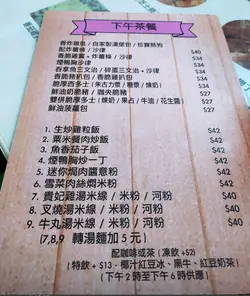 下午茶餐
香炸雞髀 / 自家製漢堡包 / 珍寶熱狗
配炸薯條 / 沙律 $40
香脆豬扒・炸薯條 / 沙律 $34
煙鴨胸沙律 $27
吞拿魚三文治 / 碎蛋三文治・沙律 $34
香脆雞扒包 / 香脆豬扒包 $34
脆厚西多士 (朱古力漿 / 花生醬 / 煉奶) $34
鮮油奶脆豬 / 咖央脆豬 $34
雙拼脆厚多士 (煉奶 / 果占 / 牛油 / 花生醬) $27
鮮油菠蘿包 $27
1. 生炒雞粒飯 $42
2. 粟米餐肉炒飯 $42
3. 魚香茄子飯 $42
4. 煙鴨胸炒一丁 $42
5. 迷你焗肉醬意粉 $42
6. 雪菜肉絲燜米粉 $42
7. 貴妃雞湯米線 / 米粉 / 河粉 $42
8. 叉燒湯米線 / 米粉 / 河粉 $42
9. 牛丸湯米線 / 米粉 / 河粉 $42
(7,8,9 轉湯麵加 5 元)
配咖啡或茶 (凍飲 +$2)
(特飲 + $13・椰汁紅豆冰、黑牛、紅豆奶茶)
(下午 2 時至下午 6 時供應)